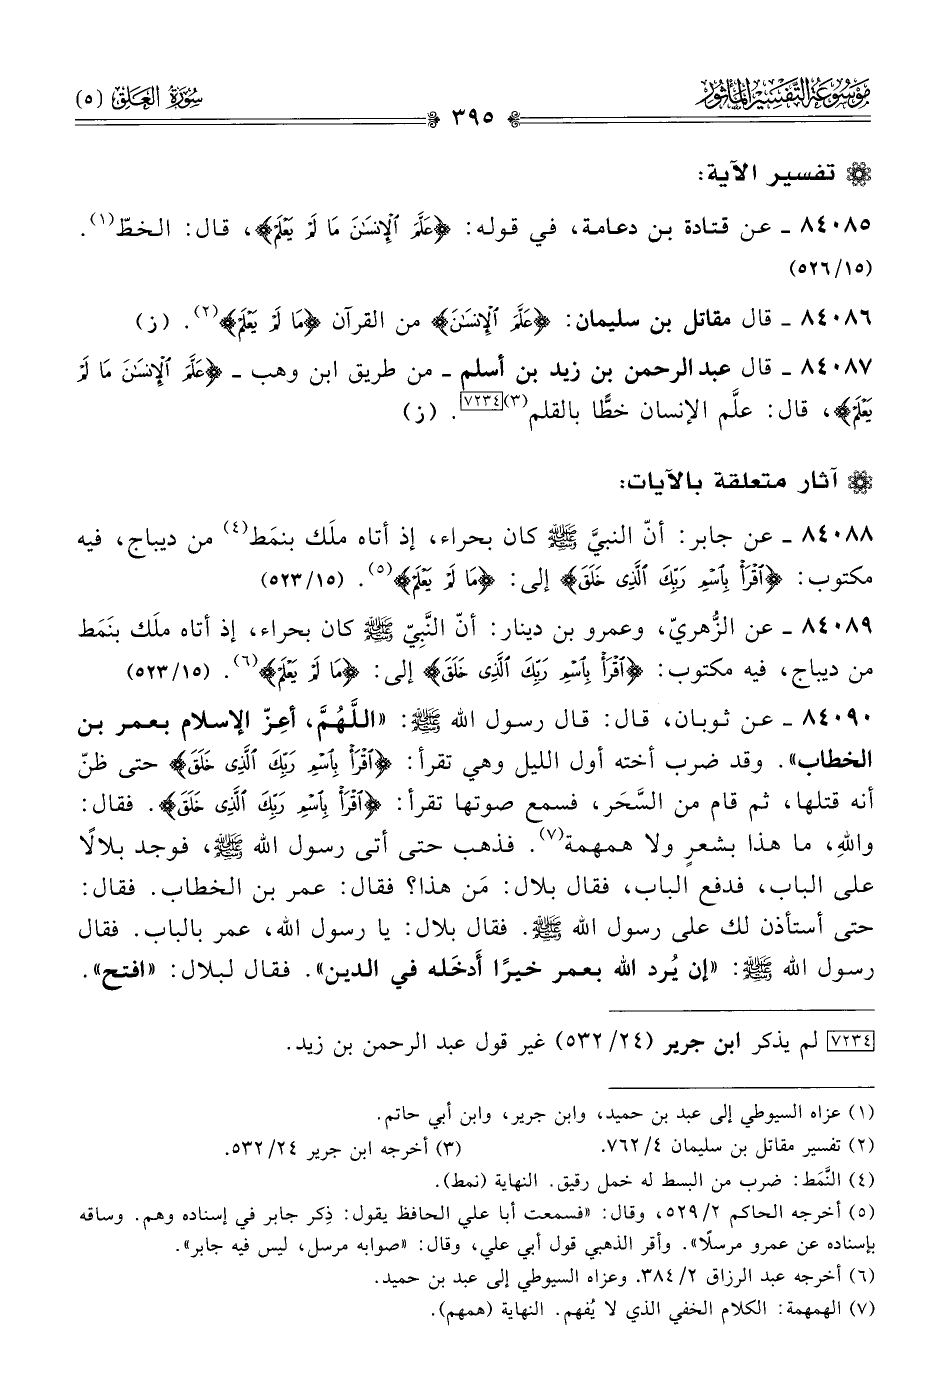 مَوْسُوعَةُ التَّفْسِيرِ المَأْثُور
سُورَةُ العَلَق (٥)
٣٩٥
تفسير الآية:
٨٤٠٨٥ ـ عن قتادة بن دعامة، في قوله: ﴿عَلَّمَ ٱلْإِنسَٰنَ مَا لَمْ يَعْلَمْ﴾، قال: الخطّ(١).
(٥٢٦/١٥)
٨٤٠٨٦ ـ قال مقاتل بن سليمان: ﴿عَلَّمَ ٱلْإِنسَٰنَ﴾ من القرآن ﴿مَا لَمْ يَعْلَمْ﴾(٢). (ز)
٨٤٠٨٧ ـ قال عبد الرحمن بن زيد بن أسلم ـ من طريق ابن وهب ـ ﴿عَلَّمَ ٱلْإِنسَٰنَ مَا لَمْ
يَعْلَمْ﴾، قال: علَّم الإنسان خطًّا بالقلم(٣)[٧٢٣٤]. (ز)
آثار متعلقة بالآيات:
٨٤٠٨٨ ـ عن جابر: أنّ النبيَّ ﷺ كان بحراء، إذ أتاه ملَك بنمَط(٤) من ديباج، فيه
مكتوب: ﴿ٱقْرَأْ بِٱسْمِ رَبِّكَ ٱلَّذِى خَلَقَ﴾ إلى: ﴿مَا لَمْ يَعْلَمْ﴾(٥). (٥٢٣/١٥)
٨٤٠٨٩ ـ عن الزُّهريّ، وعمرو بن دينار: أنّ النَّبِيّ ﷺ كان بحراء، إذ أتاه ملَك بنَمَط
من ديباج، فيه مكتوب: ﴿ٱقْرَأْ بِٱسْمِ رَبِّكَ ٱلَّذِى خَلَقَ﴾ إلى: ﴿مَا لَمْ يَعْلَمْ﴾(٦). (٥٢٣/١٥)
٨٤٠٩٠ ـ عن ثوبان، قال: قال رسول الله ﷺ: «اللَّهُمَّ، أعِزّ الإسلام بعمر بن
الخطاب». وقد ضرب أخته أول الليل وهي تقرأ: ﴿ٱقْرَأْ بِٱسْمِ رَبِّكَ ٱلَّذِى خَلَقَ﴾ حتى ظنّ
أنه قتلها، ثم قام من السَّحَر، فسمع صوتها تقرأ: ﴿ٱقْرَأْ بِٱسْمِ رَبِّكَ ٱلَّذِى خَلَقَ﴾. فقال:
واللهِ، ما هذا بشعرٍ ولا همهمة(٧). فذهب حتى أتى رسول الله ﷺ، فوجد بلالًا
على الباب، فدفع الباب، فقال بلال: مَن هذا؟ فقال: عمر بن الخطاب. فقال:
حتى أستأذن لك على رسول الله ﷺ. فقال بلال: يا رسول الله، عمر بالباب. فقال
رسول الله ﷺ: «إن يُرد الله بعمر خيرًا أَدخَله في الدين». فقال لبلال: «افتح».
[٧٢٣٤] لم يذكر ابن جرير (٢٤/ ٥٣٢) غير قول عبد الرحمن بن زيد.
(١) عزاه السيوطي إلى عبد بن حميد، وابن جرير، وابن أبي حاتم.
(٢) تفسير مقاتل بن سليمان ٤/ ٧٦٢. (٣) أخرجه ابن جرير ٢٤/ ٥٣٢.
(٤) النَّمَط: ضرب من البسط له خمل رقيق. النهاية (نمط).
(٥) أخرجه الحاكم ٢/ ٥٢٩، وقال: «فسمعت أبا علي الحافظ يقول: ذِكر جابر في إسناده وهم. وساقه
بإسناده عن عمرو مرسلًا». وأقر الذهبي قول أبي علي، وقال: «صوابه مرسل، ليس فيه جابر».
(٦) أخرجه عبد الرزاق ٢/ ٣٨٤. وعزاه السيوطي إلى عبد بن حميد.
(٧) الهمهمة: الكلام الخفي الذي لا يُفهم. النهاية (همهم).